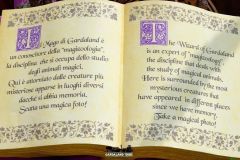 Il Mago di Gardaland è
un conoscitore della "magizoologia",
la disciplina che si occupa dello studio
degli animali magici.
Qui è attorniato dalle creature più
misteriose apparse in luoghi diversi
dacché si abbia memoria.
Scatta una magica foto!
The Wizard of Gardaland
is an expert of "magizoology",
the discipline that deals with
the study of magical animals.
Here is surrounded by the most
mysterious creatures that
have appeared in different places
since we have memory.
Take a magical photo!